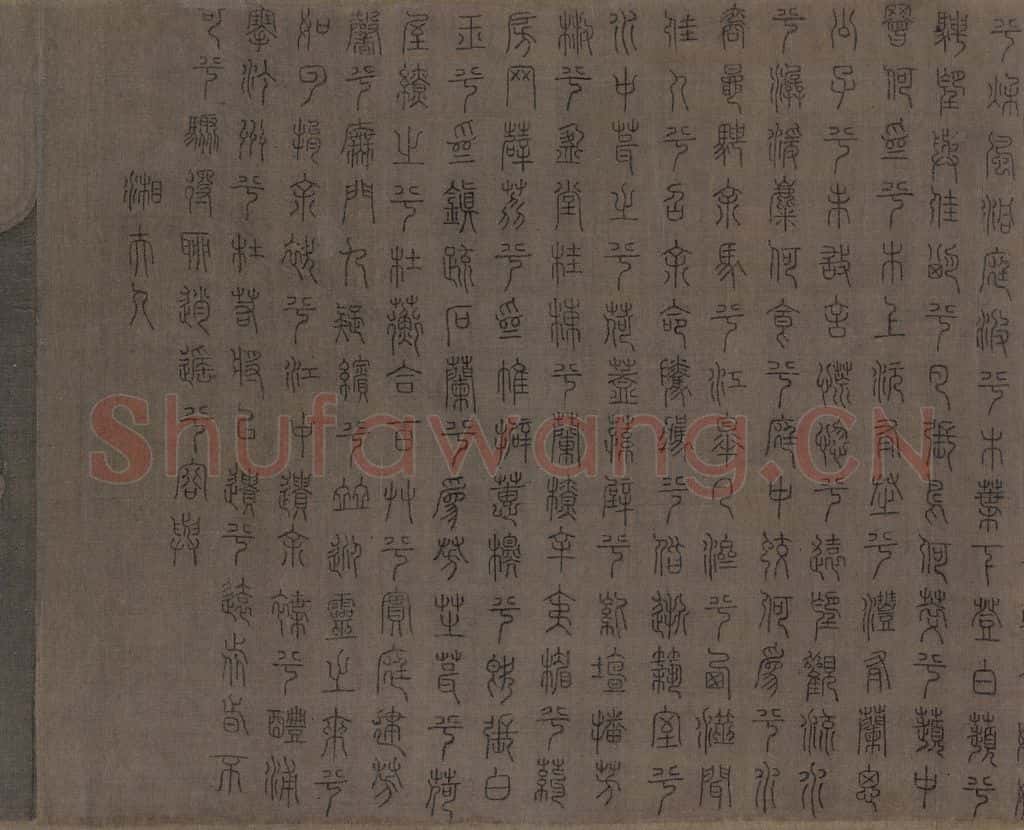 兮秋風洞庭波兮木葉下登白薠兮
騁望與佳期兮夕張鳥何萃兮蘋中
罾何為兮木上沅有茝兮澧有蘭思
公子兮未敢言慌惚兮遠望觀流水
兮潺湲麋何食兮庭中蛟何為兮水
裔鼂馳余馬兮江皋夕濟兮西澨聞
佳人兮召余命騰駕兮偕逝築室兮
水中葺之兮荷蓋蓀壁兮紫壇播芳
椒兮盈堂桂棟兮蘭橑辛夷楣兮葯
房罔薜荔兮為帷擗蕙櫋兮既張白
玉兮為鎮疏石蘭兮為芳芷葺兮荷
屋繚之兮杜蘅合百草兮實庭建芳
馨兮廡門九疑繽兮並迎靈之來兮
如雲捐余袂兮江中遺余褋兮醴浦
搴汀洲兮杜若將以遺兮遠者時不
可兮驟得聊逍遙兮容與
湘夫人
Shufawang.CN